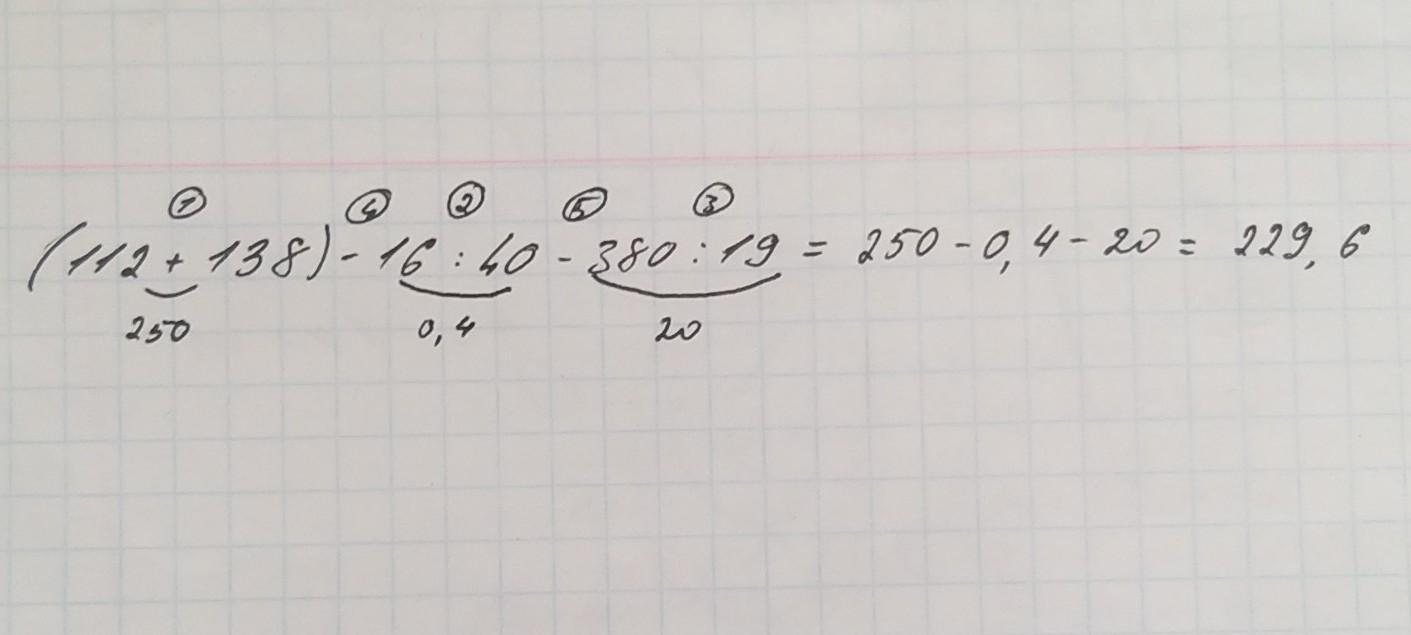 ① ④ ② ⑤ ③
(112 + 138) - 16 : 40 - 380 : 19 = 250 - 0,4 - 20 = 229,6
250 0,4 20